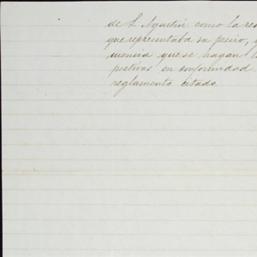 de S. Agustin como la res
que representaba su precio, y
mencia que se hagan l
pectivas en conformidad
reglamento citado